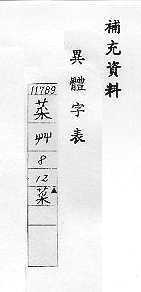 補充資料
異體字表
11789
艸
8
12
菜▲